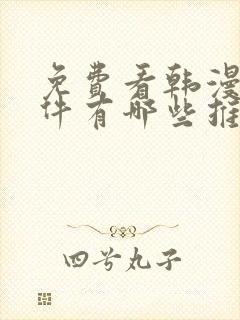 免费看韩漫
件有哪些推
四号丸子